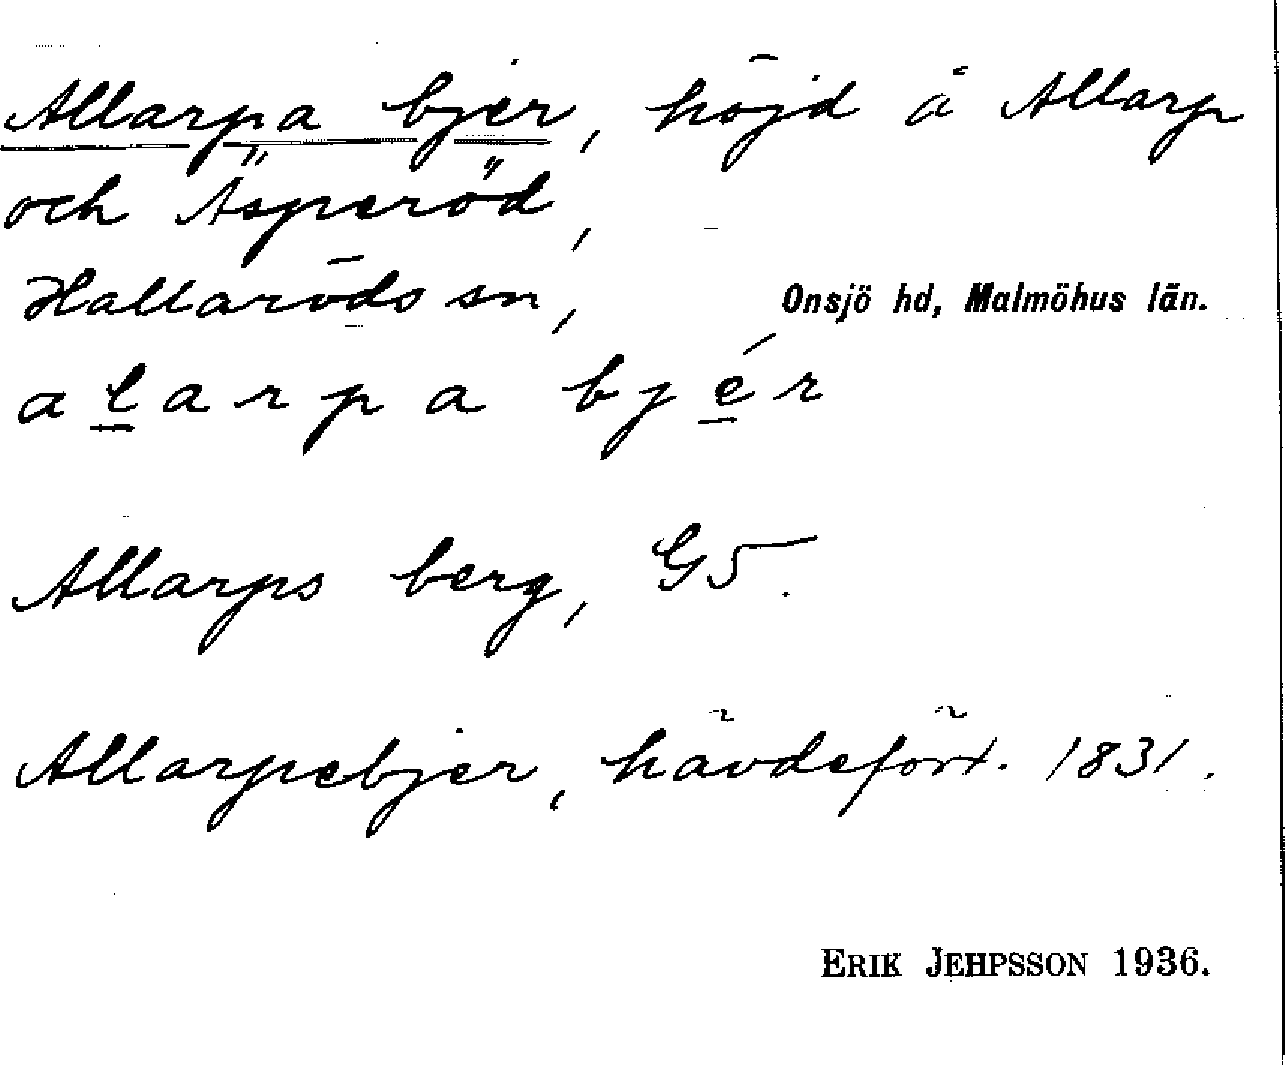 Allarpa bjer, höjd å Allarp
och Äsperöd,
Hallaröds sn, Onsjö hd, Malmöhus län.
alarpa bjér
Allarps berg, G5.
Allarpebjer, hävdefört. 1831.
ERIK JEHPSSON 1936.